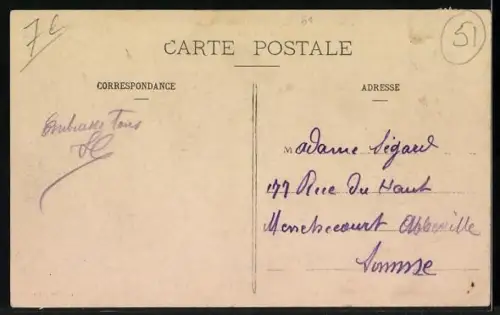 7c
51
CARTE POSTALE
CORRESPONDANCE
ADRESSE
Embrasses Tous
Madame Ségard
177 Rue Du Haut
Menchecourt Abbeville
Somme